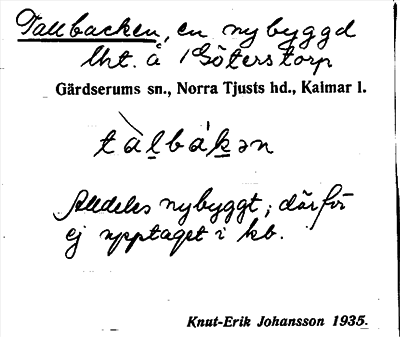 Tallbacken, en nybyggd
lht. å Göterstorp
Gärdserums sn., Norra Tjusts hd., Kalmar l.
tàl̲bák̲ən
Alldeles nybyggt; därför
ej upptaget i kb.
Knut-Erik Johansson 1935.